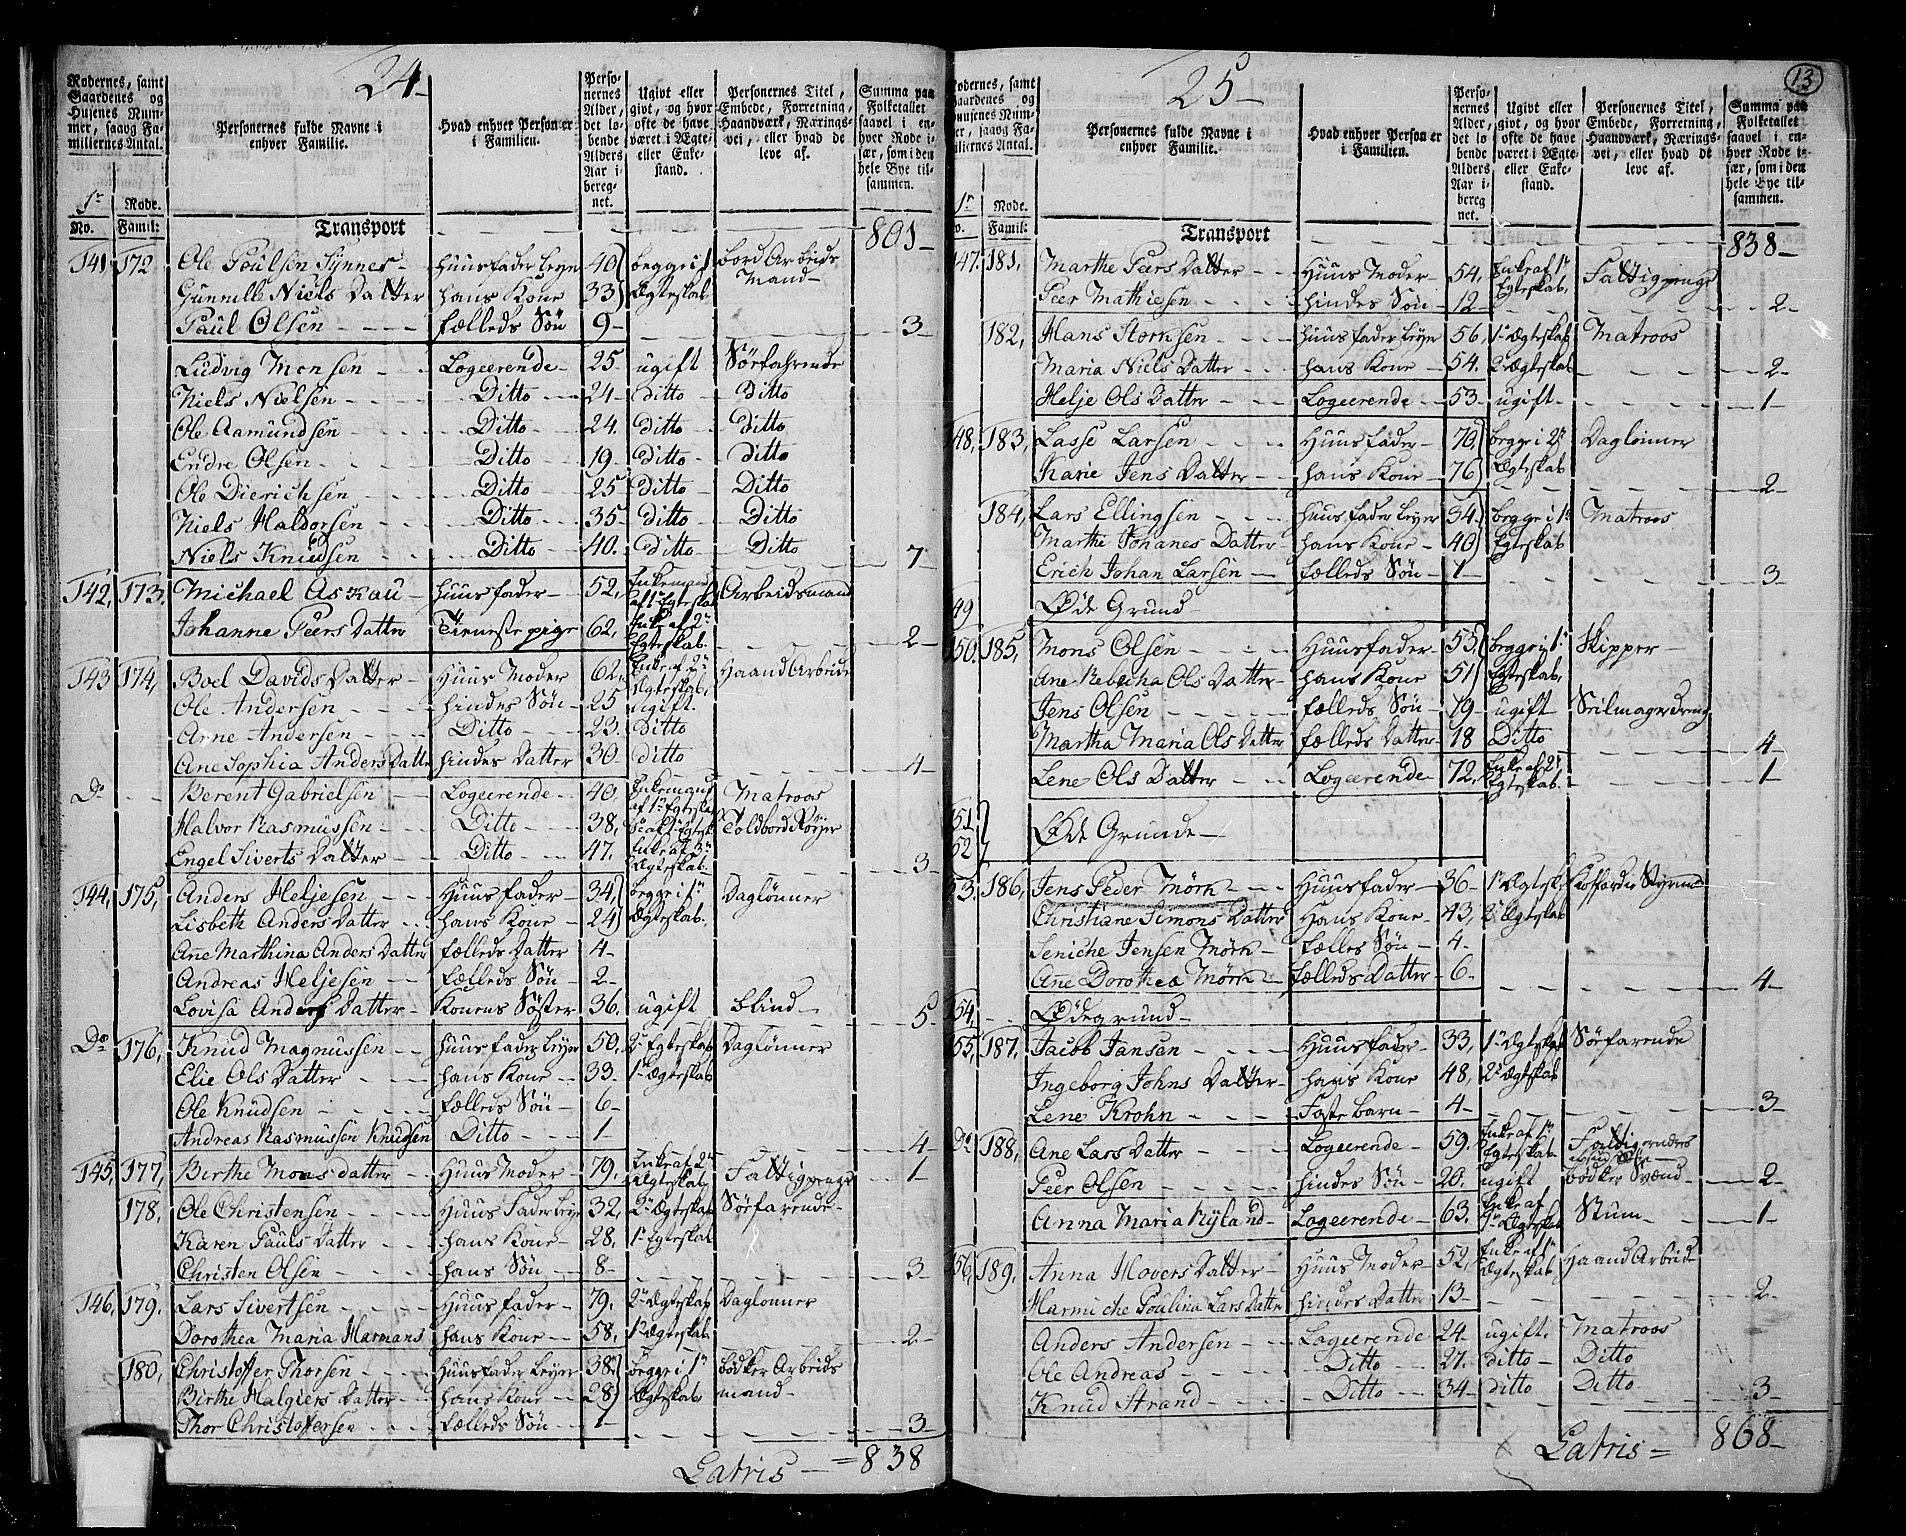 24
Rodernes, samt Gaardenes og Husenes Nummer, saavg Familiernes Antal.
Personernes fulde Navne i enhver Familie.
Hvad enhver Person er i Familien.
Personernes Alder, det løbende Alders Aar iberegnet.
Ugivt eller givt, og hvor ofte de have været i Ægte- eller Enkestand.
Personernes Titel, Embede, Forretning, Haandværk, Næringsvei, eller hvad de leve af.
Summa paa Folketallet saavel i enhver Rode især, som i den hele Bye tilsammen.
1r Rode.
No. Famil:
Transport 801
141 172 Ole Poulsen Synnes Huusfader Leyer 40 begge i 1 bord Arbeids
Gunnille Niels Datter hans Kone 33 Ægteskab Mand
Paul Olsen fælleds Søn 9 3
Ludvig Monsen Logeerende 25 ugift Sørfahrende
Niels Nielsen Ditto 24 ditto Ditto
Ole Aamundsen Ditto 24 Ditto Ditto
Endre Olsen Ditto 19 Ditto Ditto
Ole Dierichsen Ditto 25 Ditto Ditto
Niels Haldorsen Ditto 35 Ditto Ditto
Niels Knudsen Ditto 40 Ditto Ditto 7
142 173 Michael Askau Huusfader 52 Enkemand af 1 Ægteskab Arbeidsmand
Johanne Peers Datter Tieneste pige 62 Enke af 2 Egteskab 2
143 174 Boel Davids Datter Huus Moder 62 Enke af 2 Ægteskab Haand Arbeide
Ole Andersen hindes Søn 25 ugift
Arne Andersen Ditto 23 Ditto
Ane Sophia Anders Datter hindes Datter 30 ditto 4
Do Berent Gabrielsen Logeerende 40 Enkemand af 1 Egteskab Matroos
Halvor Rasmussen Ditto 38 Toldbord Royer
Engel Siverts Datter Ditto 47 Enke af 3 Ægteskab 3
144 175 Anders Heljesen Huus fader 34 begge i 1 Daglønner
Lisbeth Anders Datter hans Kone 24 Ægteskab
Ane Marthina Anders Datter fælleds Datter 4
Andreas Heljesen fælleds Søn 2
Lovisa Anders Datter Konens Søster 36 ugift blind 5
Do 176 Knud Magnussen Huus fader Leyer 50 2 Egteskab Daglønner
Elie Ols Datter hans Kone 33 1 Ægteskab
Ole Knudsen fælleds Søn 6
Andreas Rasmussen Knudsen Ditto 1 4
145 177 Birthe Mons datter Huus Moder 79 Enke af 2 Ægteskab Fattigpenge 1
178 Ole Christensen Huus Fader Leyer 32 2 Ægteskab Sørfarende
Karen Pauls Datter hans Kone 28 1 Egteskab
Christen Olsen hans Søn 8 3
146 179 Lars Sivertsen Huus fader 79 2 Ægteskab Daglonner
Dorothea Maria Harmans hans Kone 58 1 Ægteskab 2
180 Christoffer Thorsen Huusfader Leyer 38 begge i 1 bødker Arbeids
Birthe Halgiers Datter hans Kone 28 Ægteskab mand
Thor Christoffersen fælleds Søn 1 3
Latris = 838
25
13
Rodernes, samt Gaardenes og Husenes Nummer, saavg Familiernes Antal.
Personernes fulde Navne i enhver Familie.
Hvad enhver Person er i Familien.
Personernes Alder, det løbende Alders Aar iberegnet.
Ugivt eller givt, og hvor ofte de have været i Ægte- eller Enkestand.
Personernes Titel, Embede, Forretning, Haandværk, Næringsvei, eller hvad de leve af.
Summa paa Folketallet saavel i enhver Rode især, som i den hele Bye tilsammen.
1r Rode.
Famil:
Transport 838
147 181 Marthe Peers Datter Huus Moder 54 Enke af 1 Egteskab Fattigpenge
Peer Mathiesen hindes Søn 12 2
182 Hans Storksen Huusfader Leyer 56 1 Ægteskab Matroos
Maria Niels Datter hans Kone 54 2 Ægteskab 2
Helje Ols Datter Logeerende 53 ugift 1
48 183 Lasse Larsen Huus fader 70 begge i 2 Dagløinner
Karie Jens Datter hans Kone 76 Ægteskab 2
184 Lars Ellingsen Huus fader Leyer 34 begge i 1 Matroos
Marthe Johanes Datter hans Kone 40 Egteskab
Erich Johan Larsen fælleds Søn 1 3
49 Øde Grund
150 185 Mons Olsen Huusfader 53 begge i 1 Skipper
Ane Rebecha Ols Datter hans Kone 51 Egteskab
Jens Olsen fælleds Søn 19 ugift Seilmagerdreng
Martha Maria Ols Datter fælleds Datter 18 Ditto 4
Lene Ols Datter Logeerende 72 Enke af 2 Egteskab 1
51
52 Øde Grunde
53 186 Jens Peder Mörk Huusfader 36 1 Ægtesk. Koffardie Styrmand
Christiane Simons Datter Hans Kone 43 2 Ægteskab
Seniche Jensen Mörk fælles Søn 4
Ane Dorothea Mörk fælleds Datter 6 4
54 Ødegrund
55 187 Jacob Jansen Huusfader 33 1 Ægteskab Sørfarende
Ingeborg Johns Datter hans Kone 48 2 Ægteskab
Lene Krohn Foster barn 4 3
Do 188 Ane Lars Datter Logeerende 59 Enke af 1 Egteskab
Peer Olsen hindes Søn 20 ugift bødker Svend 2
Anna Maria Ryland Logeerende 63 Enke af 1 Ægteskab Stum 1
56 189 Anna Hovers Datter Huus Moder 52 Enke af 1 Ægteskab Haand Arbeid
Harmiche Poulina Lars Datter hindes Datter 13 2
Anders Andersen Logeerende 24 ugift Matroos
Ole Andreas Ditto 27 ditto Ditto
Knud Strand Ditto 34 ditto Ditto 3
Latris = 868